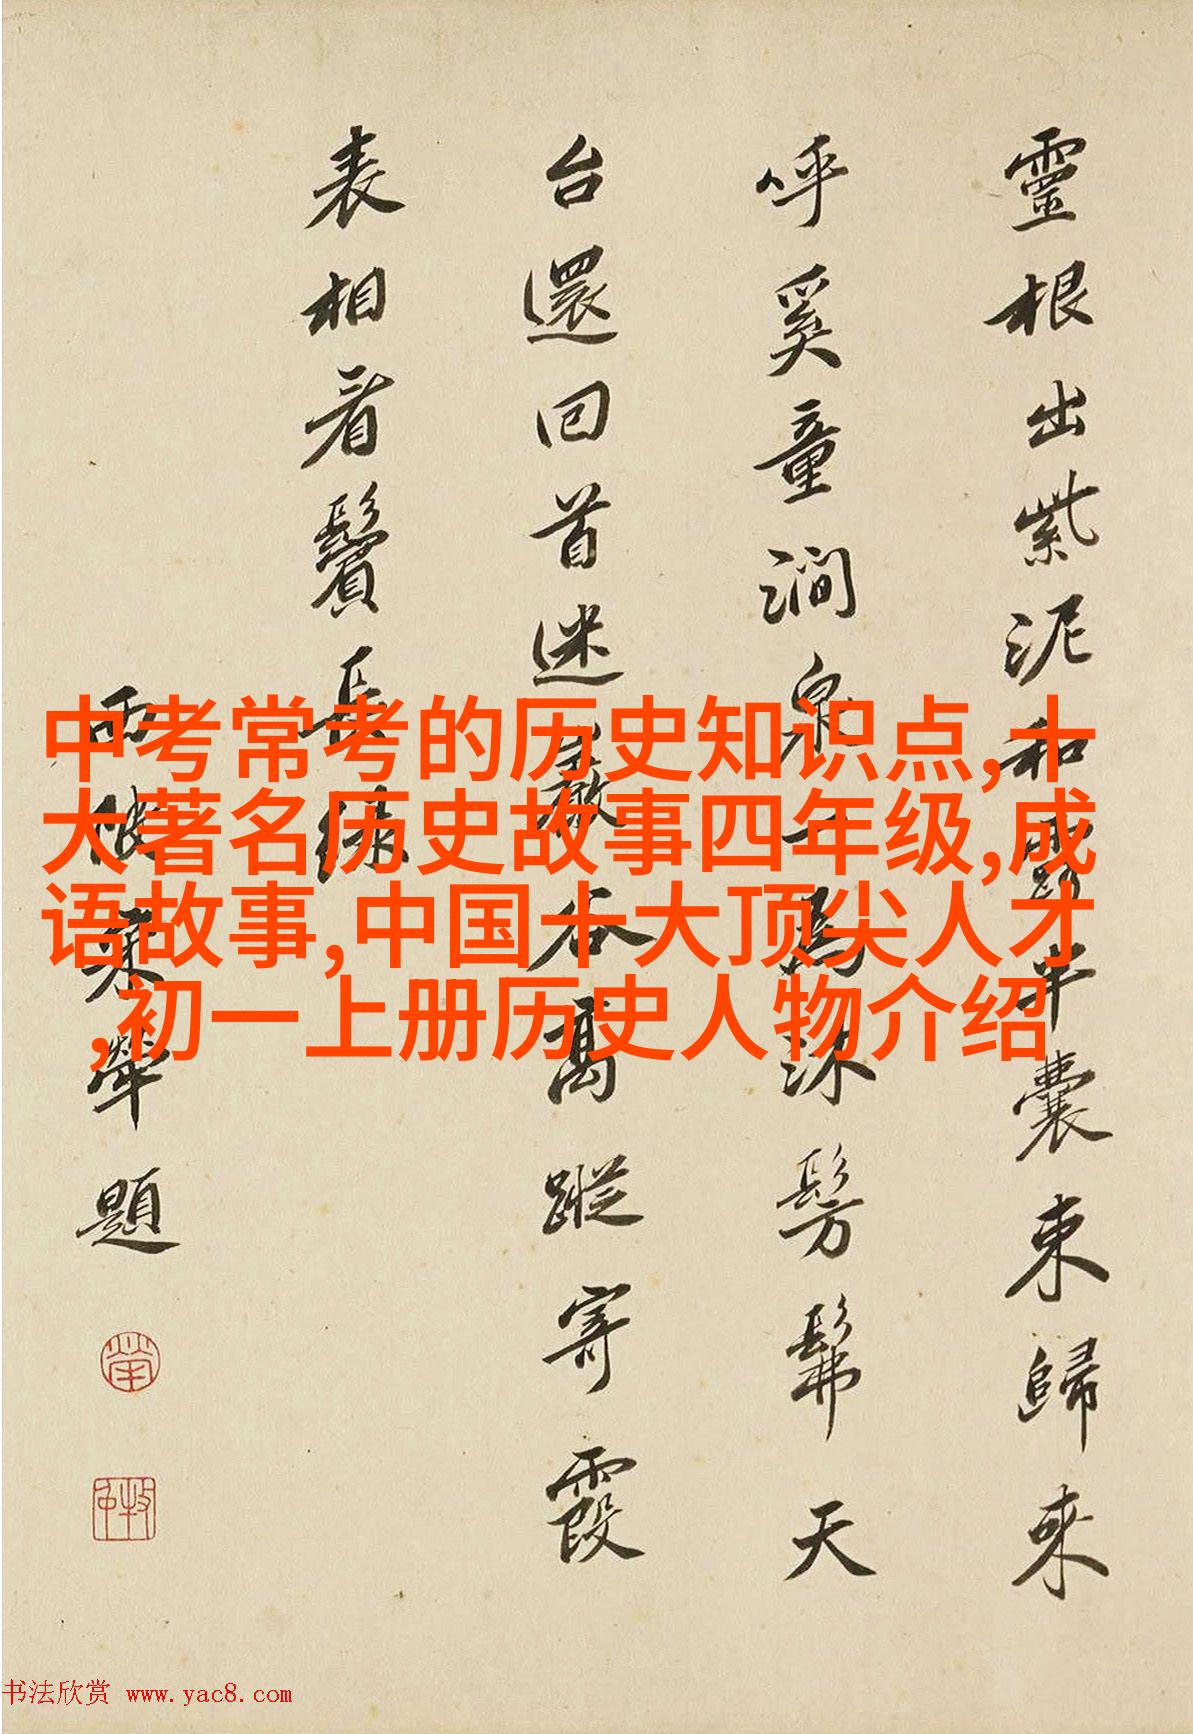 靈根出紫泥和半囊束歸來
呼奚童澗泉一為沐髣髴天
台還回首迷巖谷高蹤寄霞
表相看鬢長綠
雨犖題
中考常考的历史知识点,十
大著名历史故事四年级,成
语故事,中国十大顶尖人才
,初一上册历史人物介绍
书法欣赏 www.yac8.com